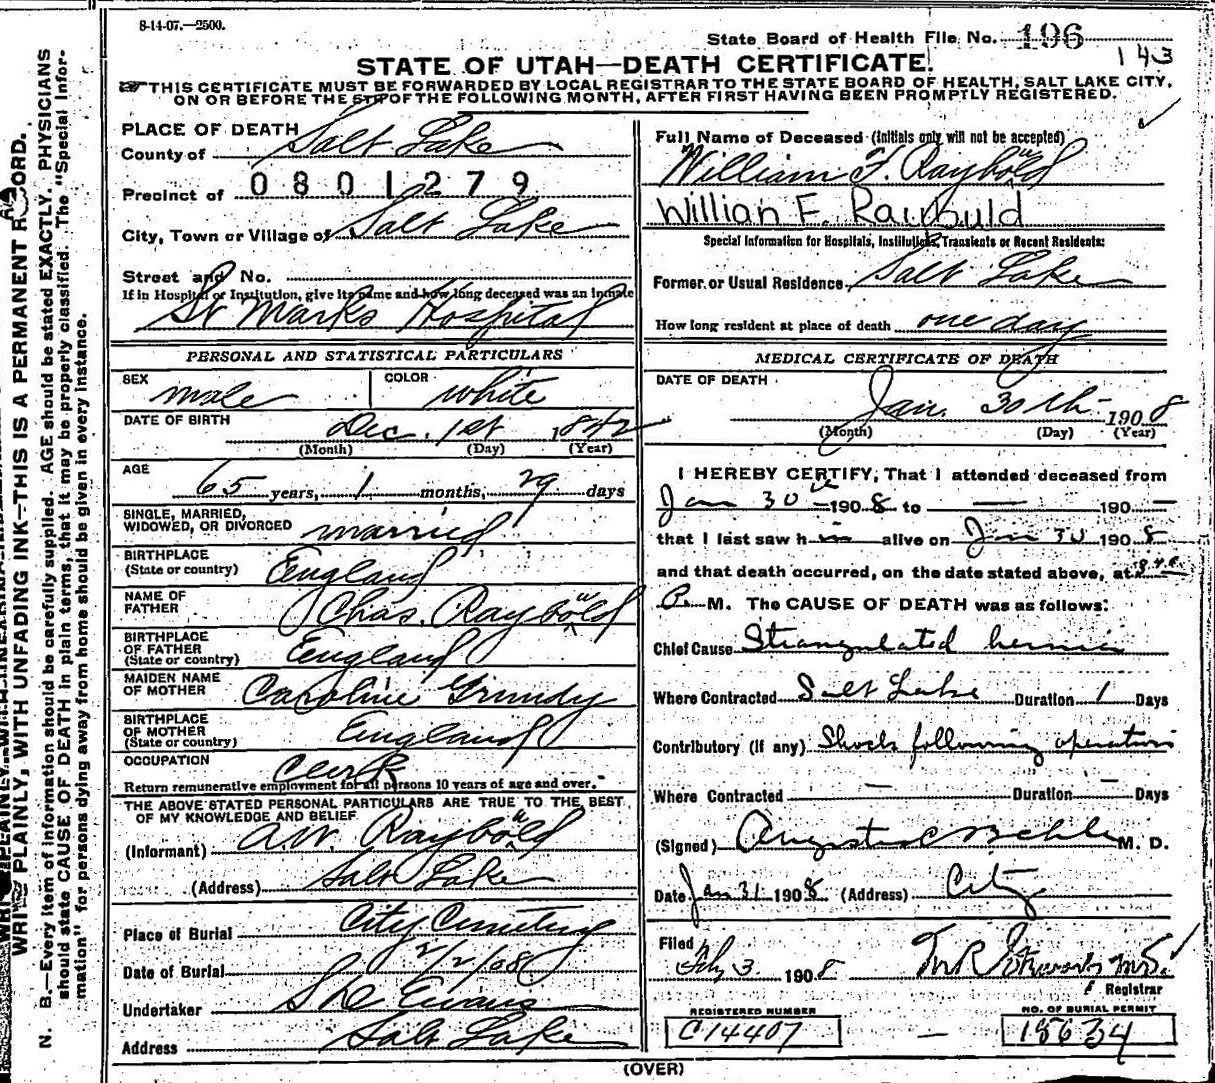 8-14-07.—2500.
State Board of Health File No. 196
143
STATE OF UTAH—DEATH CERTIFICATE.
THIS CERTIFICATE MUST BE FORWARDED BY LOCAL REGISTRAR TO THE STATE BOARD OF HEALTH, SALT LAKE CITY,
ON OR BEFORE THE 5TH OF THE FOLLOWING MONTH, AFTER FIRST HAVING BEEN PROMPTLY REGISTERED.
WRITE PLAINLY, WITH UNFADING INK—THIS IS A PERMANENT RECORD.
N. B.—Every item of information should be carefully supplied. AGE should be stated EXACTLY. PHYSICIANS
should state CAUSE OF DEATH in plain terms, that it may be properly classified. The "Special Infor-
mation" for persons dying away from home should be given in every instance.
PLACE OF DEATH
County of Salt Lake
Precinct of 0801279
City, Town or Village of Salt Lake
Street and No.
If in Hospital or Institution, give its name and how long deceased was an inmate
St Marks Hospital
PERSONAL AND STATISTICAL PARTICULARS
SEX male COLOR white
DATE OF BIRTH Dec. 1st 1842
(Month) (Day) (Year)
AGE
65 years, 1 months, 29 days
SINGLE, MARRIED,
WIDOWED, OR DIVORCED married
BIRTHPLACE
(State or country) England
NAME OF
FATHER Chas. Raybould
BIRTHPLACE
OF FATHER
(State or country) England
MAIDEN NAME
OF MOTHER Caroline Grundy
BIRTHPLACE
OF MOTHER
(State or country) England
OCCUPATION Clerk
Return remunerative employment for all persons 10 years of age and over.
THE ABOVE STATED PERSONAL PARTICULARS ARE TRUE TO THE BEST
OF MY KNOWLEDGE AND BELIEF
(Informant) A.W. Raybould
(Address) Salt Lake
Place of Burial City Cemetery
Date of Burial 2/2/08
Undertaker Evans
Address Salt Lake
Full Name of Deceased (initials only will not be accepted)
William F. Raybould
Willian F. Raybuld
Special Information for Hospitals, Institutions, Transients or Recent Residents:
Former or Usual Residence Salt Lake
How long resident at place of death one day
MEDICAL CERTIFICATE OF DEATH
DATE OF DEATH
Jan. 30th 1908
(Month) (Day) (Year)
I HEREBY CERTIFY, That I attended deceased from
Jan 30th 1908 to — 190—
that I last saw h im alive on Jan 30 1908
and that death occurred, on the date stated above, at
P. M. The CAUSE OF DEATH was as follows:
Chief Cause Strangulated hernia
Where Contracted Salt Lake Duration 1 Days
Contributory (if any) Shock following operation
Where Contracted — Duration — Days
(Signed) M. D.
Date Jan 31 1908 (Address) City
Filed
Feby 3 1908
Registrar
REGISTERED NUMBER
C14407
—
NO. OF BURIAL PERMIT
18634
(OVER)